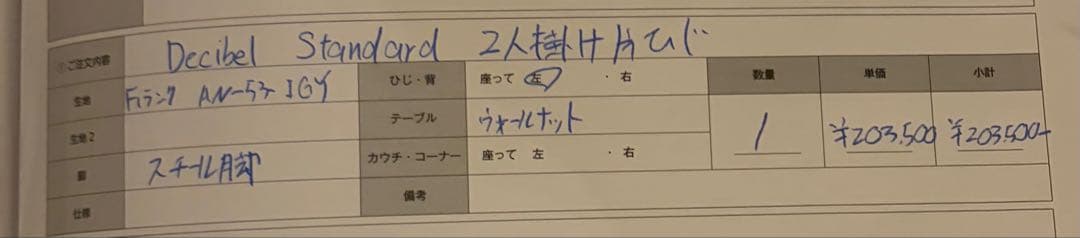 ①ご注文内容 Decibel Standard 2人掛け片ひじ
生地 Fランク AN-53 IGY ひじ・背 座って 左 ・ 右 数量 単価 小計
生地2 テーブル ウォールナット 1 ¥203,500 ¥203,500-
脚 スチール脚 カウチ・コーナー 座って 左 ・ 右
仕様 備考